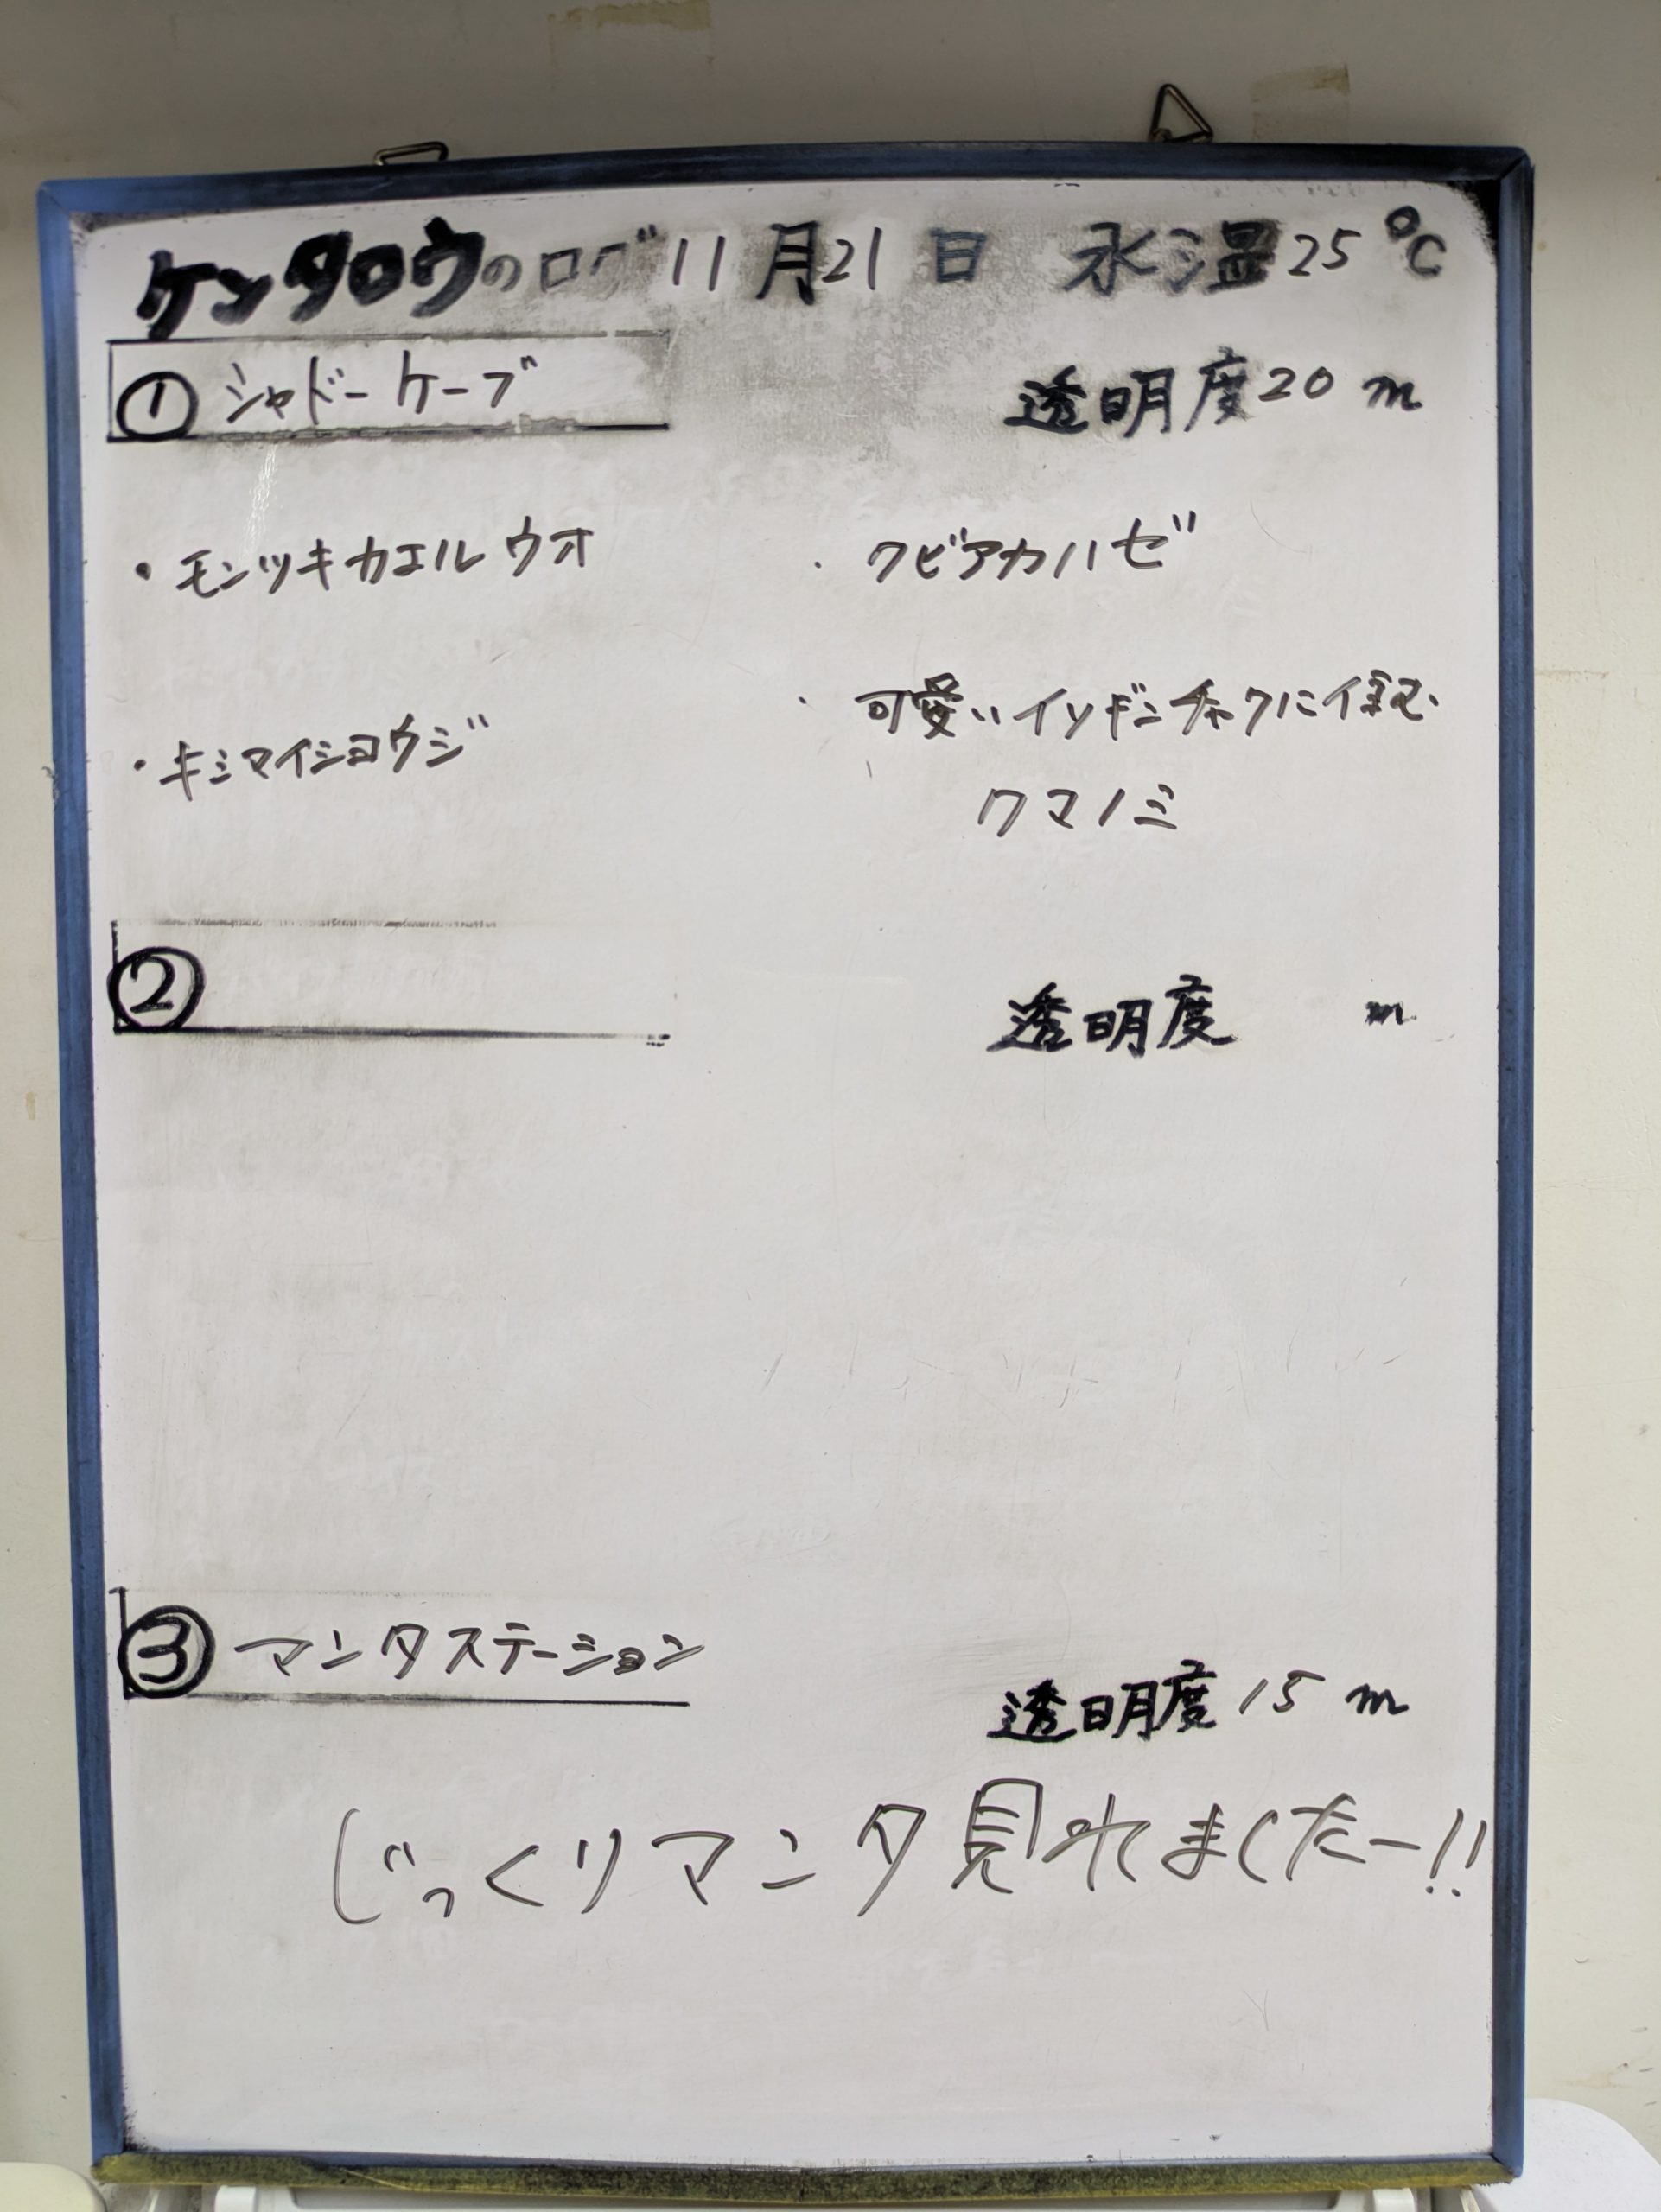 ケンタロウのログ 11月21日 水温25℃
① シャドーケーブ 透明度20m
・モンツキカエルウオ
・クビアカハゼ
・キシマイショウジ
・可愛いイソギンチャクに住む
クマノミ
② 透明度 m
③ マンタステーション 透明度15m
じっくりマンタ見れましたー!!